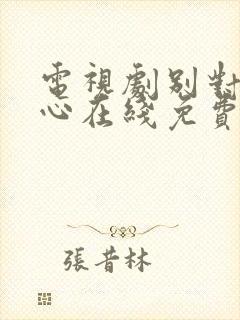 電視劇別對
心在綫免費
張昔林